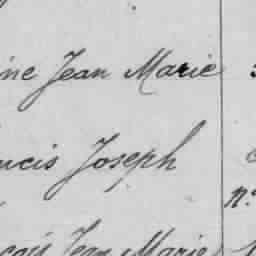 ine Jean Marie
ncis Joseph
n.
çois Jean Marie